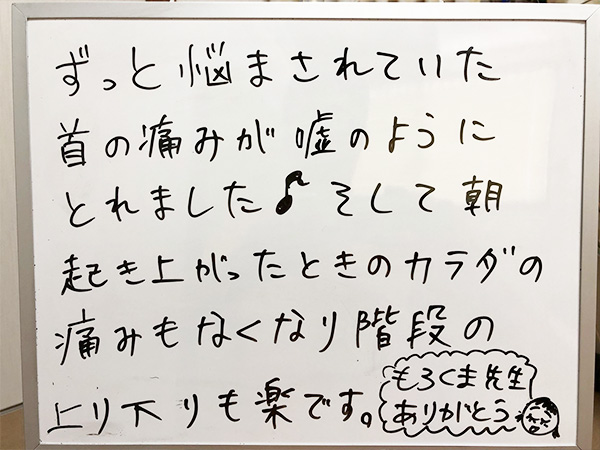 ずっと悩まされていた
首の痛みが嘘のように
とれました♪そして朝
起き上がったときのカラダの
痛みもなくなり階段の
上り下りも楽です。
もろくま先生
ありがとう